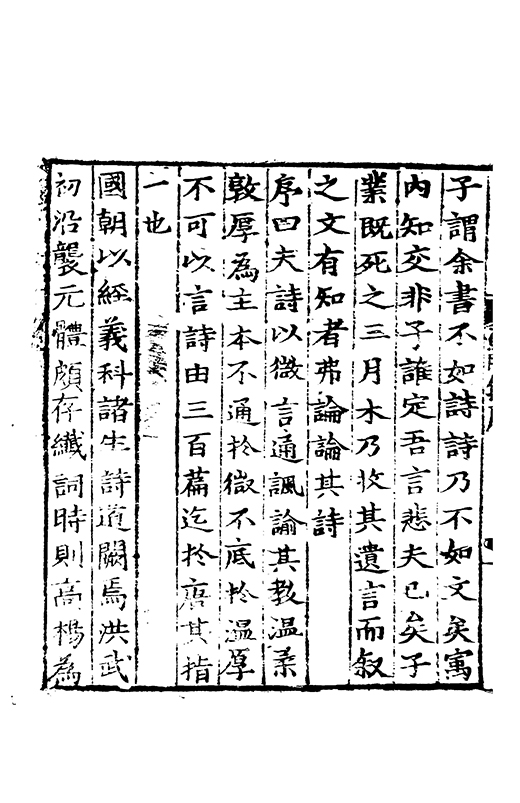 子謂余書不如詩詩乃不如文矣寓
內知交非子誰定吾言悲夫已矣子
業既死之三月木乃收其遺言而叙
之文有知者弗論論其詩
序曰夫詩以微言通諷諭其教溫柔
敦厚為主本不通於微不底於溫厚
不可以言詩由三百篇迄於唐其指
一也
國朝以經義科諸生詩道闕焉洪武
初沿襲元體頗存纖詞時則高楊為